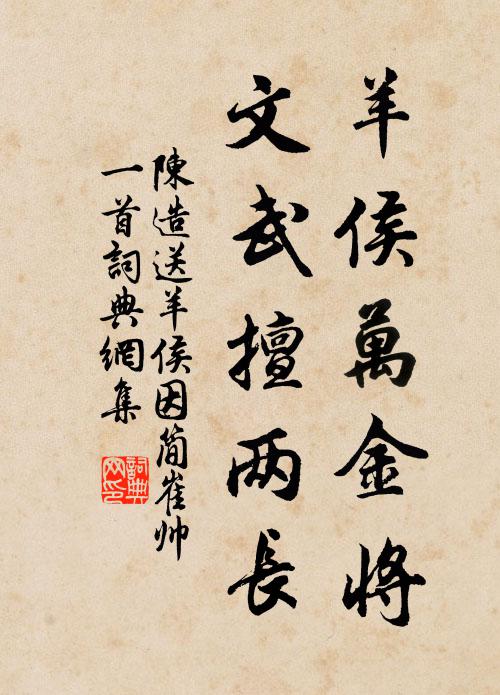 羊侯萬金將
文武擅两長
陳造送羊侯因简崔帅
一首詞典網集
詞典网印